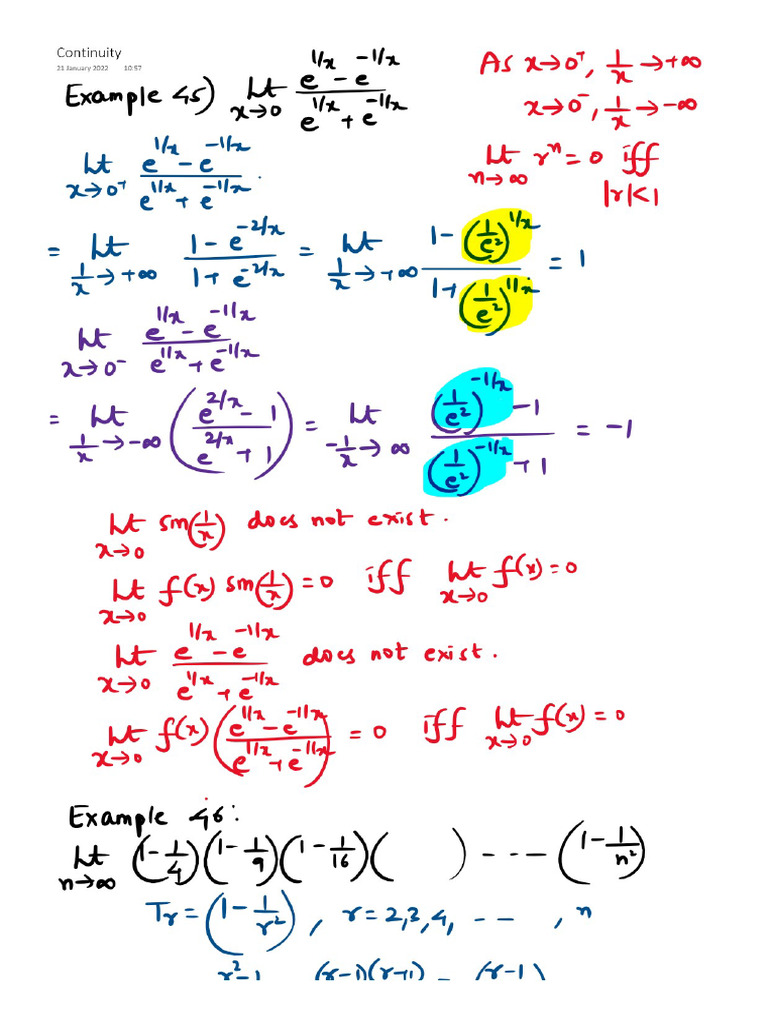 Continuity
21 January 2022 10:57
Example 45) Lt x→0 (e^{1/x} - e^{-1/x})/(e^{1/x} + e^{-1/x})
As x→0⁺, 1/x → +∞
x→0⁻, 1/x → -∞
Lt n→∞ rⁿ = 0 iff |r|<1
Lt x→0⁺ (e^{1/x} - e^{-1/x})/(e^{1/x} + e^{-1/x}).
= Lt 1/x→+∞ (1 - e^{-2/x})/(1 + e^{-2/x}) = Lt 1/x→+∞ (1 - (1/e²)^{1/x})/(1 + (1/e²)^{1/x}) = 1
Lt x→0⁻ (e^{1/x} - e^{-1/x})/(e^{1/x} + e^{-1/x})
= Lt 1/x→-∞ ((e^{2/x} - 1)/(e^{2/x} + 1)) = Lt -1/x→∞ ((1/e²)^{-1/x} - 1)/((1/e²)^{-1/x} + 1) = -1
Lt x→0 sin(1/x) does not exist.
Lt x→0 f(x) sin(1/x) = 0 iff Lt x→0 f(x) = 0
Lt x→0 (e^{1/x} - e^{-1/x})/(e^{1/x} + e^{-1/x}) does not exist.
Lt x→0 f(x) ((e^{1/x} - e^{-1/x})/(e^{1/x} + e^{-1/x})) = 0 iff Lt x→0 f(x) = 0
Example 46:
Lt n→∞ (1 - 1/4)(1 - 1/9)(1 - 1/16)( ) ---- (1 - 1/n²)
Tr = (1 - 1/r²), r = 2,3,4, -- -- , n
r²-1 (r-1)(r+1) = (r-1)